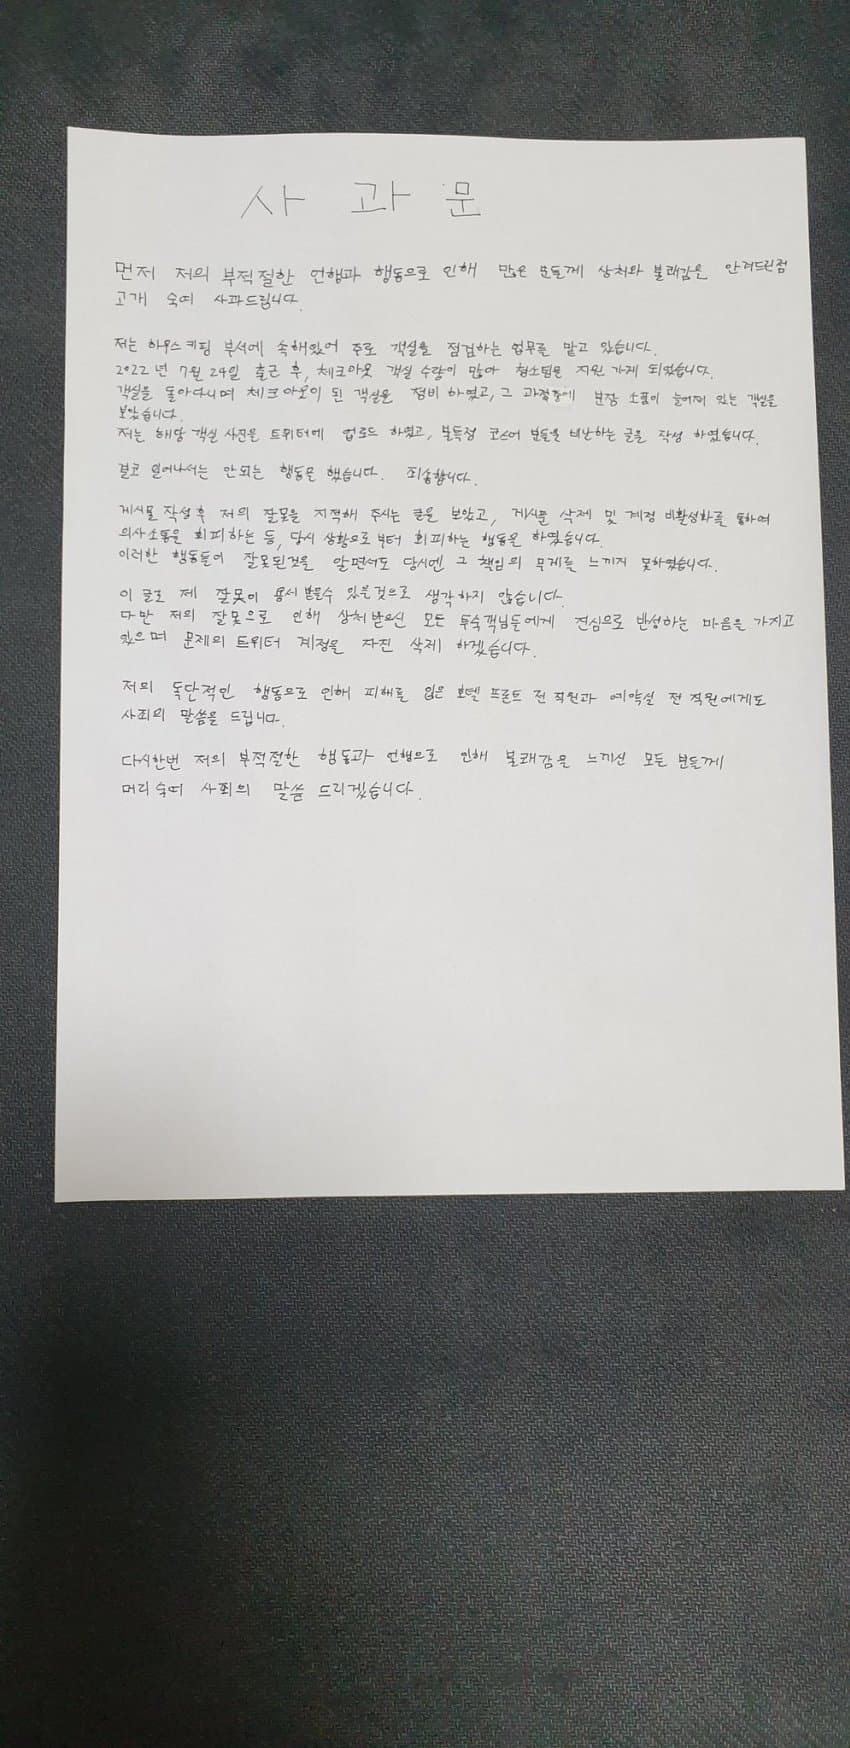 사 과 문
먼저 저의 부적절한 언행과 행동으로 인해 많은 분들께 상처와 불쾌감을 안겨드린점
고개 숙여 사과드립니다.
저는 하우스키핑 부서에 속해있어 주로 객실을 점검하는 업무를 맡고 있습니다.
2022년 7월 24일 출근 후, 체크아웃 객실 수량이 많아 청소팀을 지원 가게 되었습니다.
객실을 돌아다니며 체크아웃이 된 객실을 정비 하였고, 그 과정중에 분장 소품이 늘어져 있는 객실을
보았습니다.
저는 해당 객실 사진을 트위터에 업로드 하였고, 불특정 코스어 분들을 비난하는 글을 작성 하였습니다.
결코 일어나서는 안되는 행동을 했습니다. 죄송합니다.
게시물 작성 후 저의 잘못을 지적해 주시는 글을 보았고, 게시물 삭제 및 계정 비활성화를 통하여
의사소통을 회피하는 등, 당시 상황으로부터 회피하는 행동을 하였습니다.
이러한 행동들이 잘못된것을 알면서도 당시엔 그 책임의 무게를 느끼지 못하였습니다.
이 글로 제 잘못이 용서 받을수 있을것으로 생각하지 않습니다.
다만 저의 잘못으로 인해 상처받으신 모든 투숙객님들에게 진심으로 반성하는 마음을 가지고
있으며 문제의 트위터 계정을 자진 삭제 하겠습니다.
저의 독단적인 행동으로 인해 피해를 입은 호텔 프론트 전 직원과 예약실 전 직원에게도
사죄의 말씀을 드립니다.
다시한번 저의 부적절한 행동과 언행으로 인해 불쾌감을 느끼신 모든 분들께
머리숙여 사죄의 말씀 드리겠습니다.